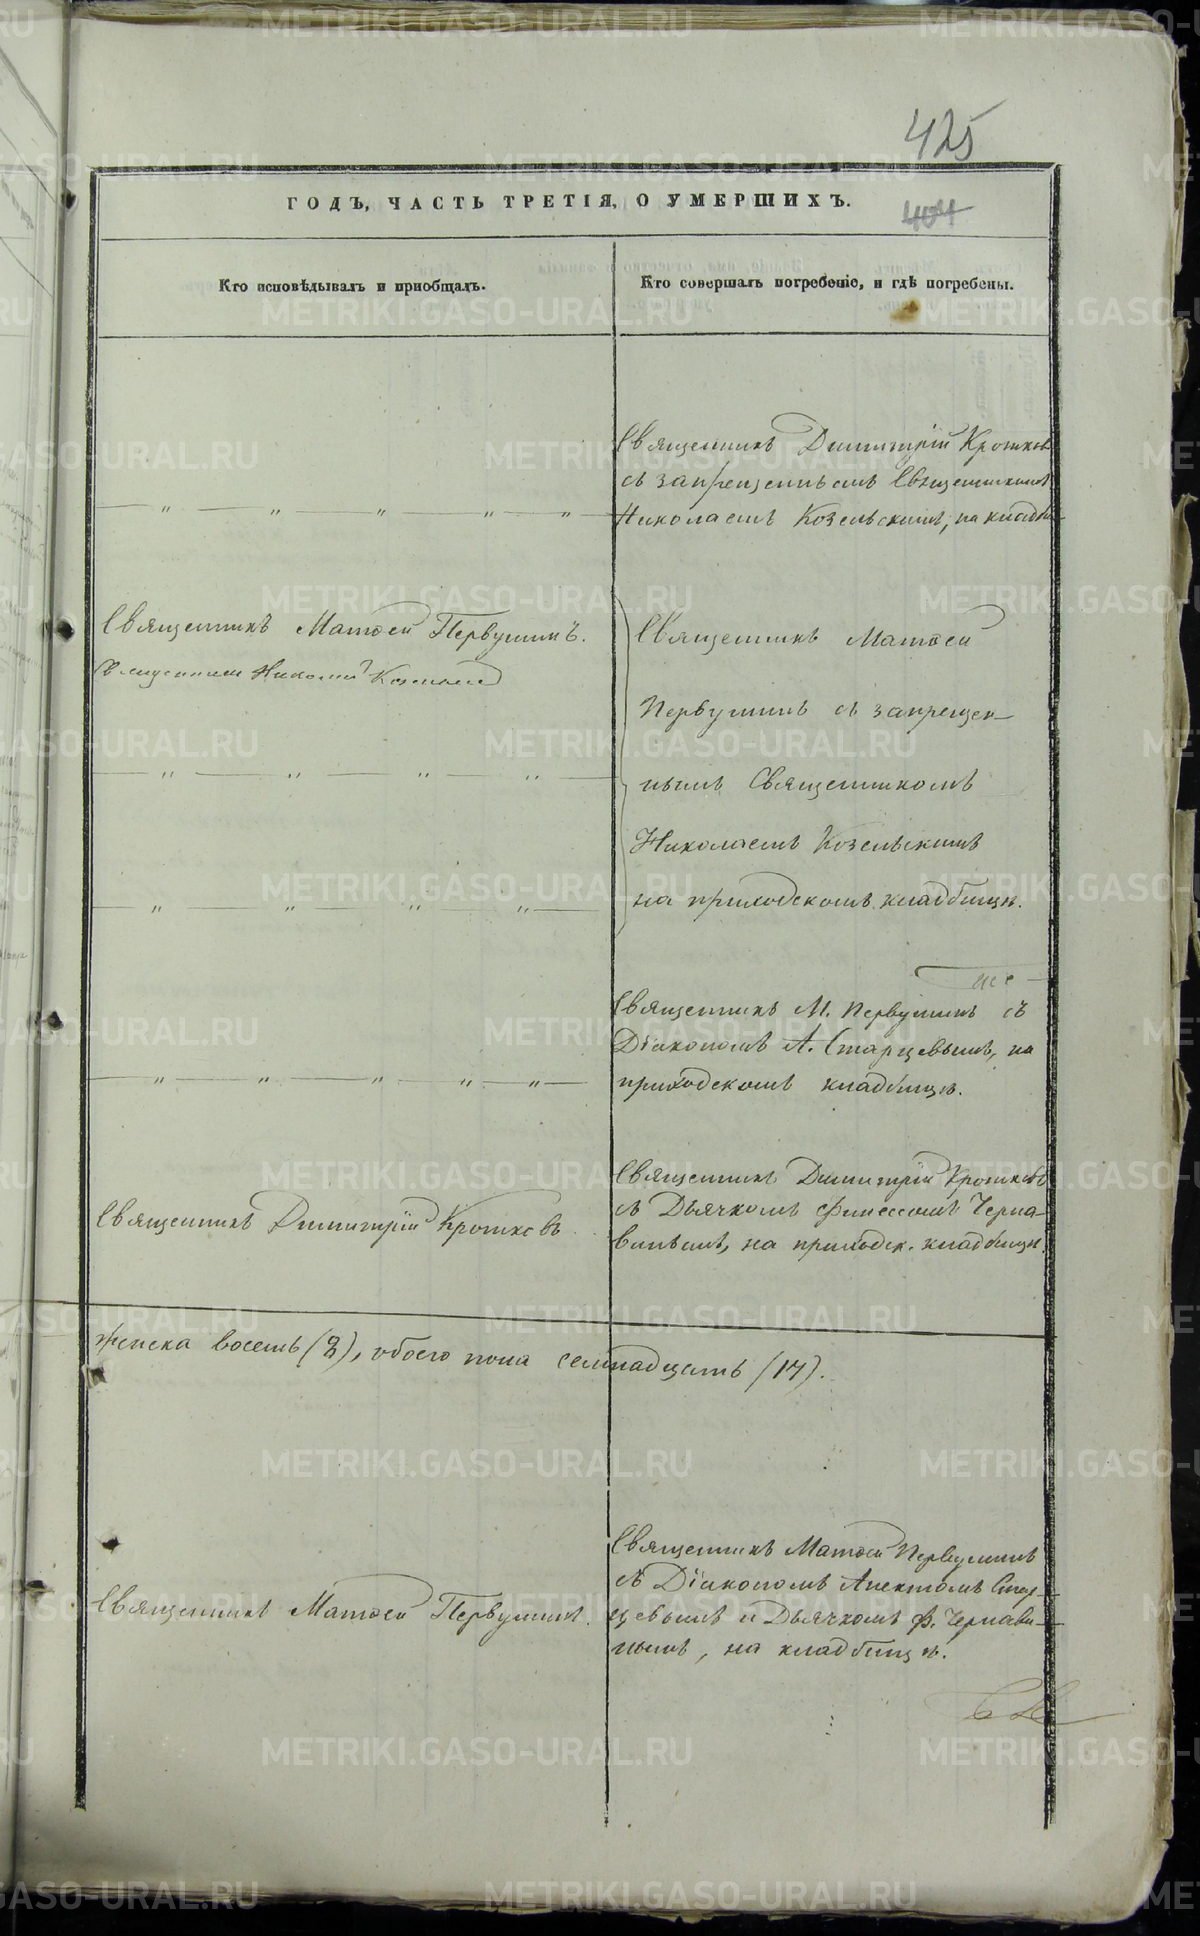 425
ГОДЪ, ЧАСТЬ ТРЕТІЯ, О УМЕРШИХЪ.
404
Кто исповѣдывалъ и пріобщалъ.
Кто совершалъ погребеніе, и гдѣ погребены.
Священникъ Димитрій Кротковъ
съ запрещеннымъ Священникомъ
Николаемъ Козельскимъ, на кладби-
Священникъ Матѳей Первушинъ.
Священникъ Николай
Священникъ Матѳей
Первушинъ съ запрещен-
нымъ Священникомъ
Николаемъ Козельскимъ
на приходскомъ кладбищѣ.
Священникъ М. Первушинъ съ
Діакономъ А. Старцевымъ, на
приходскомъ кладбищѣ.
Священникъ Димитрій Кротковъ
Священникъ Димитрій Кротковъ
съ Дьячкомъ Финеесомъ Черна-
винымъ, на приходск. кладбищѣ.
женска восемь (8), обоего пола семнадцать (17).
Священникъ Матѳей Первушинъ.
Священникъ Матѳей Первушинъ
съ Діакономъ Анектомъ Стар-
цевымъ и Дьячкомъ Ф. Чернави-
нымъ, на кладбищѣ.
METRIKI.GASO-URAL.RU